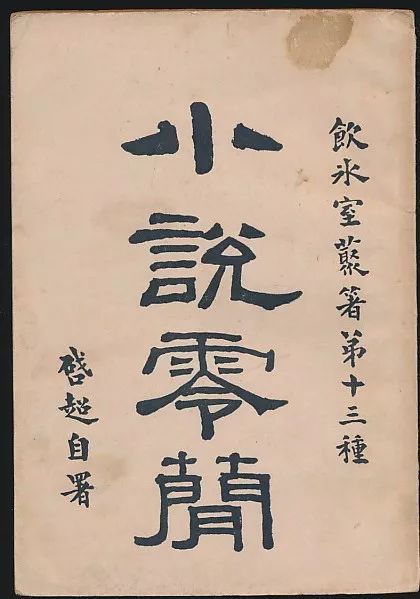 飲冰室藂著第十三種
小說零簡
啓超自署